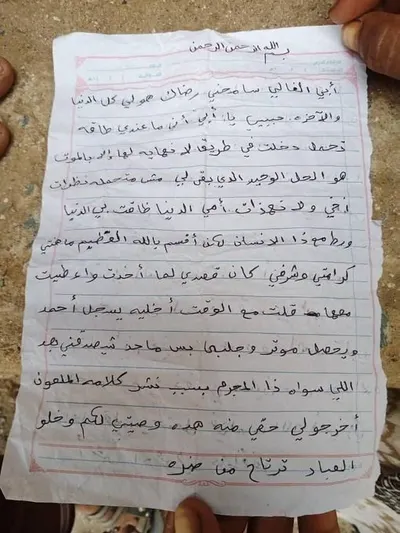 بسم الله الرحمن الرحيم
أبي الغالي سامحني رضاك هو لي كل الدنيا
والآخره حبيبي يا أبي أني ما عندي طاقه
تحمل دخلت في طريق لا نهايه لها إلى بالموت
هو الحل الوحيد الذي بقى لي مش متحمله نظرات
أختي ولا نهدات أمي الدنيا ظاقت بي الدنيا
ورطع ذا الانسان لكن أقسم بالله العظيم ماهنتي
كرامتي وشرفي كان قصدي لما أخذت واعطيت
معه قلت مع الوقت أخليه يسجل أحمد
ويحصل موتر وجلبى بس ماحد شيصدقني بعد
اللي سواه ذا المجرم بسبب نشر كلامه الملعون
أخرجولي حقي منه هذه وصيتي لكم وخلو
العباد ترتاح من ضره